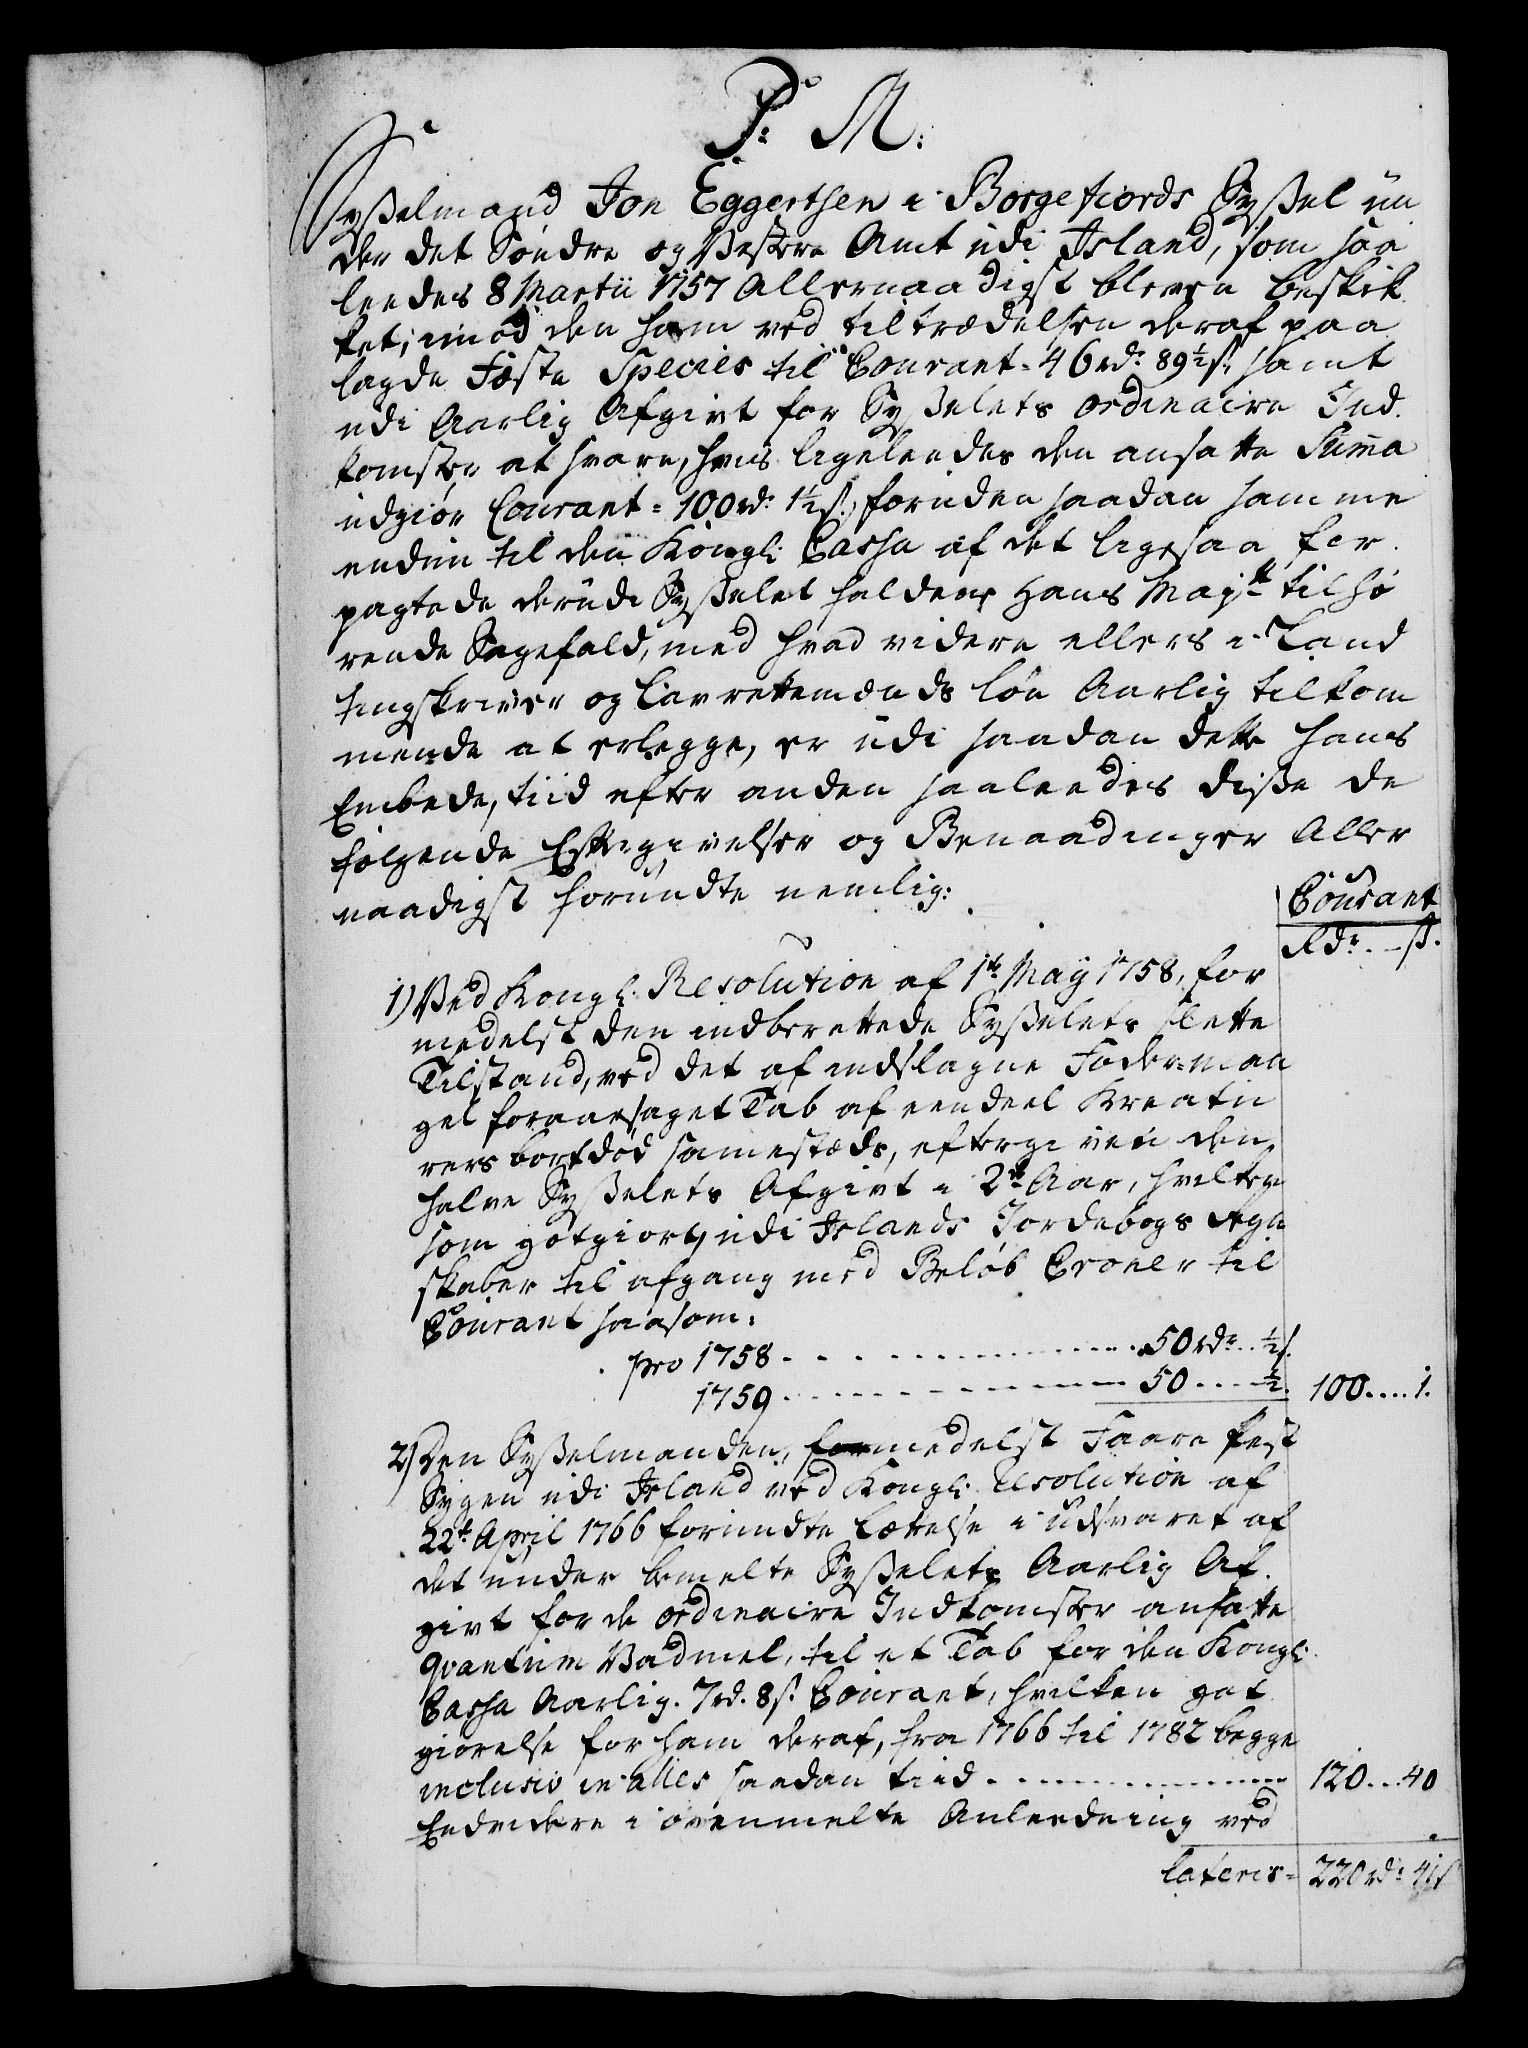 P: M:
Sysselmand Jon Eggertsen i Borgefiords Syssel un
der det Söndre og Vestre Amt udi Island, som saa
leedes 8 Martii 1757 Allernaadigst bleven beskik
ket, imod den ham ved tiltrædelsen deraf paa
lagde Fæste Species til Courant = 46 rdr 89½ s. samt
udi Aarlig Afgivt for Sysselets ordinaire Ind
komster at svare, hvis ligeleedes den ansatte Summa
udgiör Courant = 100 rdr 1½ s., foruden saadan samme
endnu til den Kongl: Cassa af det ligesaa for
pagtede derudi Sysselet faldene Hans Maytt tilhö
rende Sagefald, med hvad videre ellers i Land
tingskriver og Lavrettemænds lön Aarlig tilkom
mende at erlegge, er udi saadan dette hans
Embede, tiid efter anden saaleedes disse de
fölgende Eftergivelser og Benaadinger Aller
naadigst forundte nemlig:
Courant
Rdr. s.
1) Ved Kongl: Resolution af 1te May 1758, for
medelst den indberettede Sysselets slette
Tilstand, ved det af indslagne Foder-man
gel foraarsaget Tab af een deel Kreatu
rers bortdöd samestæds, eftergiven den
halve Sysselets Afgivt i 2de Aar, hvilken
som godtgiort, udi Islands Jordebogs Regn
skaber til afgang med Belöb Croner til
Courant saasom:
pro 1758 . . . . . . 50 rdr . . ½ s.
1759 . . . . . . 50 . . . . ½. 100 . . . . 1.
2) Den Sysselmanden, formedelst Faare Pest
Sygen udi Island ved Kongl: Resolution af
22de April 1766 forundte Lættelse i Udsvaret af
det under bemelte Sysselets Aarlig Af
givt for de ordinaire Indkomster ansatte
Qvantum Vadmel, til et Tab for den Kongl:
Cassa Aarlig. 7 rd. 8 s. Courant, hvilken got
giörelse for ham deraf, fra 1766 til 1782 begge
inclusiv in alles saadan tiid . . . . . . 120 . . . 40
Endvidere i ovenmelte Anleedning ved
Lateris = 220 rdr 41 s